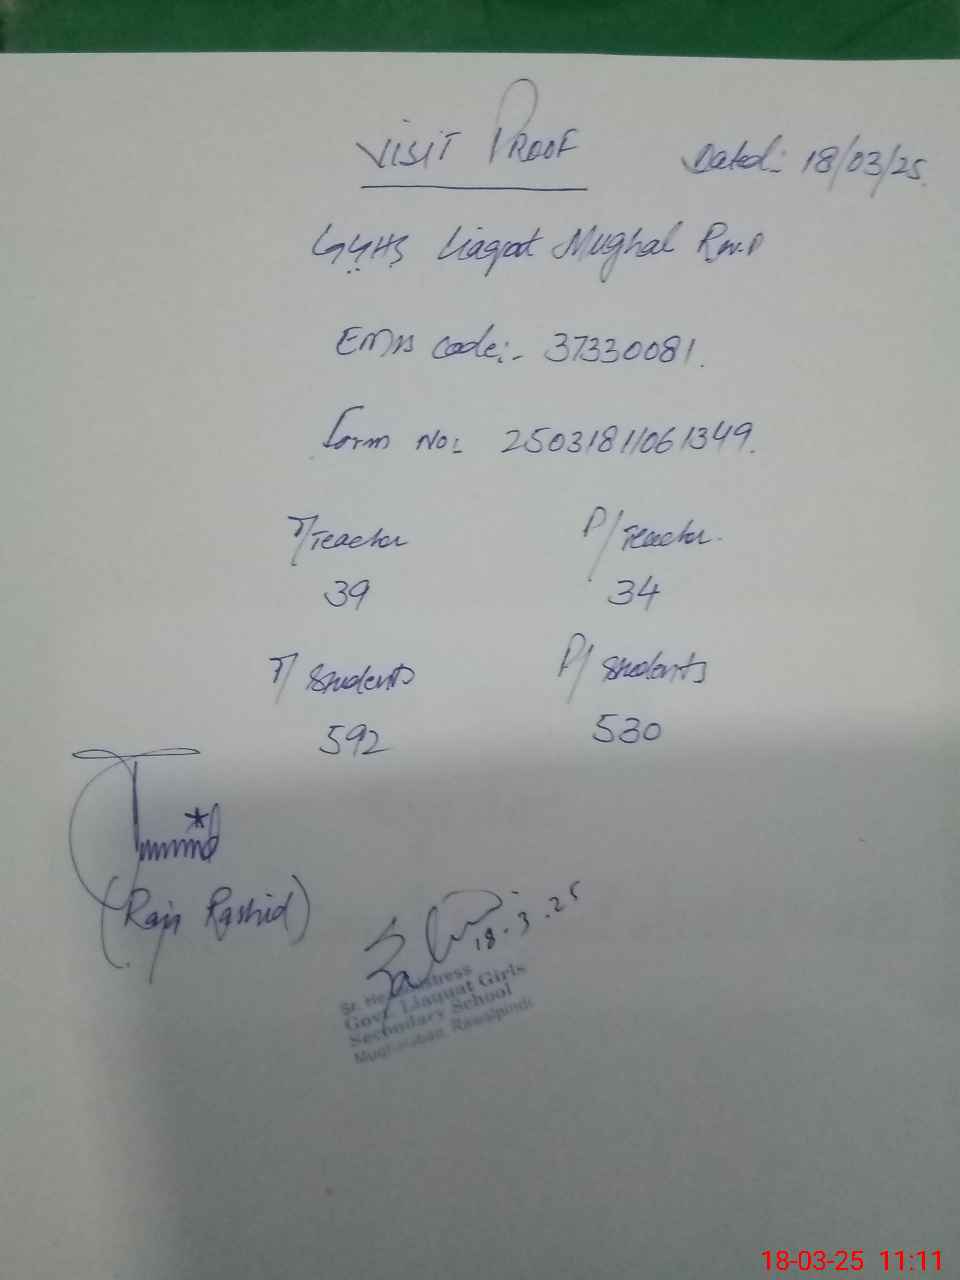 VISIT PROOF Dated:- 18/03/25.
GGHS Liaqat Mughal Raw.P
EMIS code:- 37330081.
Form No:- 2503181106 1349.
T/Teacher P/Teacher.
39 34
T/Students P/Students
592 530
(Raja Rashid)
18.3.25
Sr. Headmistress
Govt. Liaquat Girls
Secondary School
Mughalabad, Rawalpindi
18-03-25 11:11